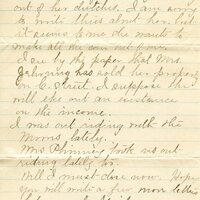 out of her clutches. I am sorry
to write this about her, but
it seems to me she wants to
make all she can out of me.
I see by the paper that Mrs.
has sold her property
on C. Street. I suppose she
will eke out an existence
on the income.
I was out riding with the
Moons lately.
Mrs Phinney took us out
riding lately, too.
Well I must close now. Hope
you will write a few more letters